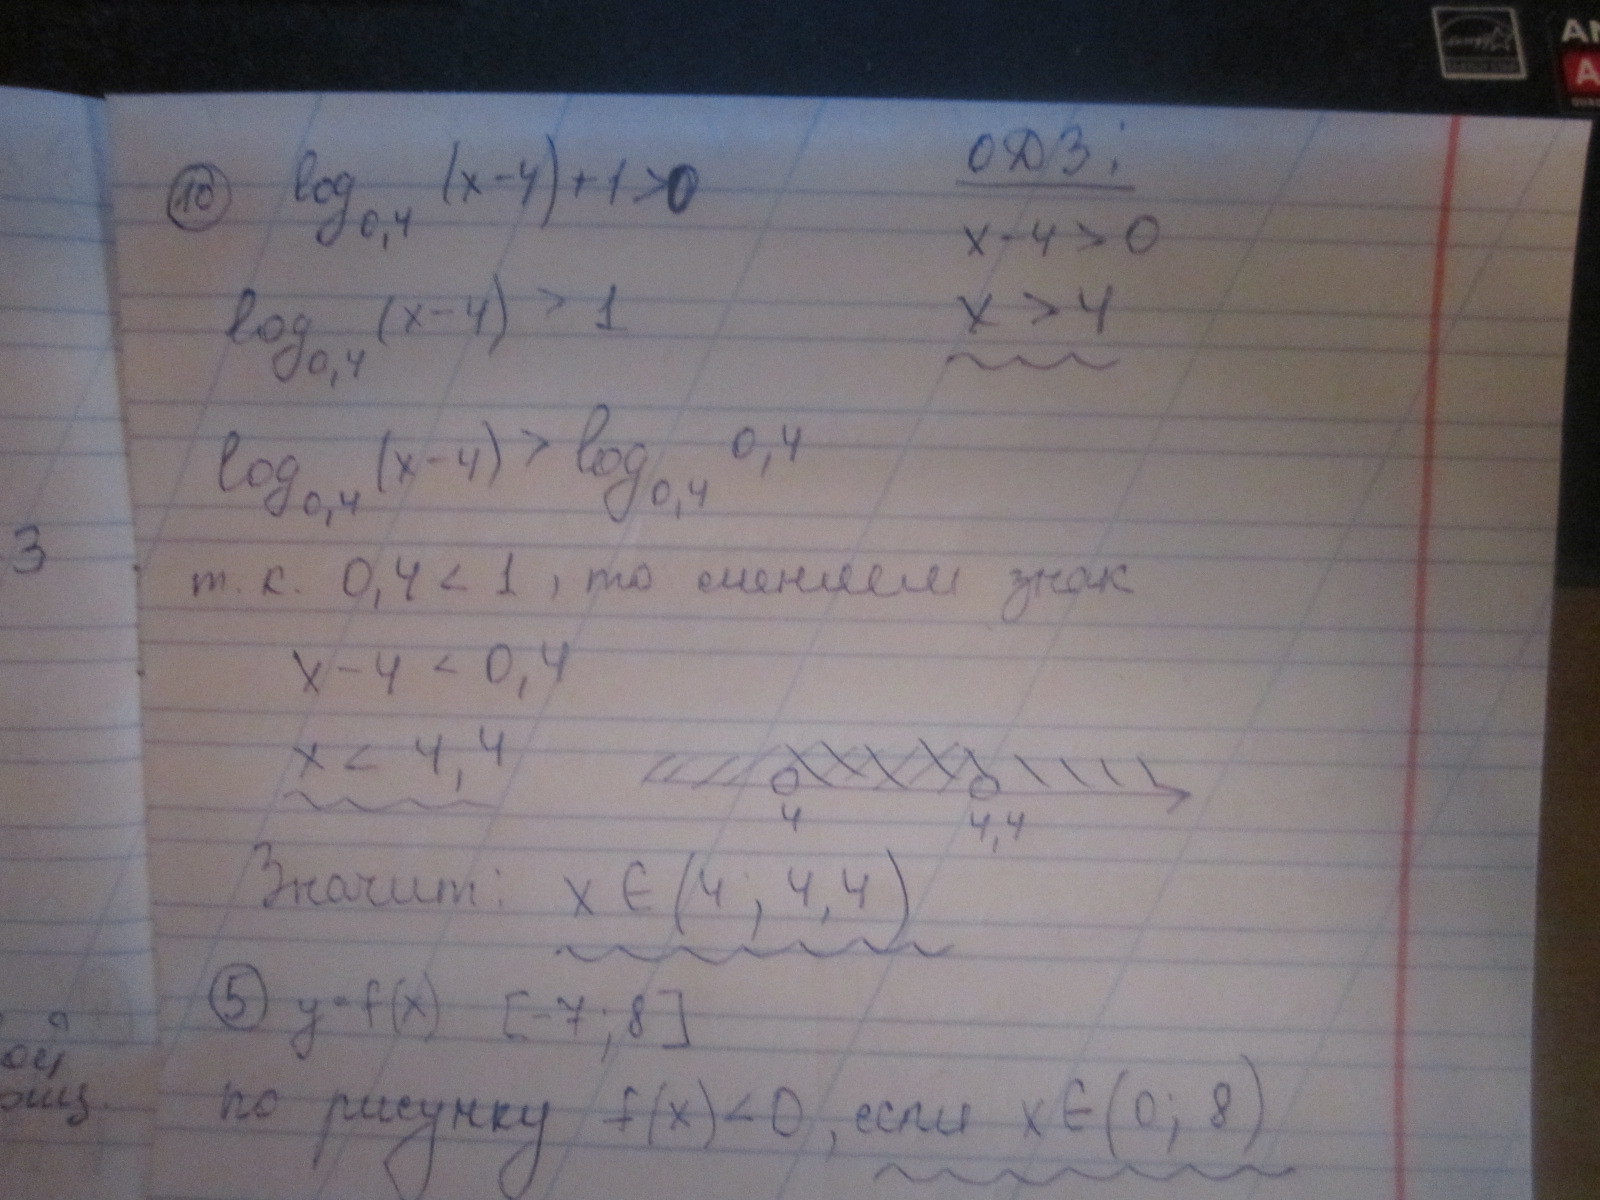 10 log₀,₄ (x-4)+1>0
ОДЗ:
x-4>0
log₀,₄ (x-4) > 1
x > 4
log₀,₄ (x-4) > log₀,₄ 0,4
3
т.к. 0,4 < 1, то меняем знак
x-4 < 0,4
x < 4,4
4 4,4
Значит: x ∈ (4; 4,4)
5 y=f(x) [-7; 8]
по рисунку f(x)<0, если x∈(0; 8)